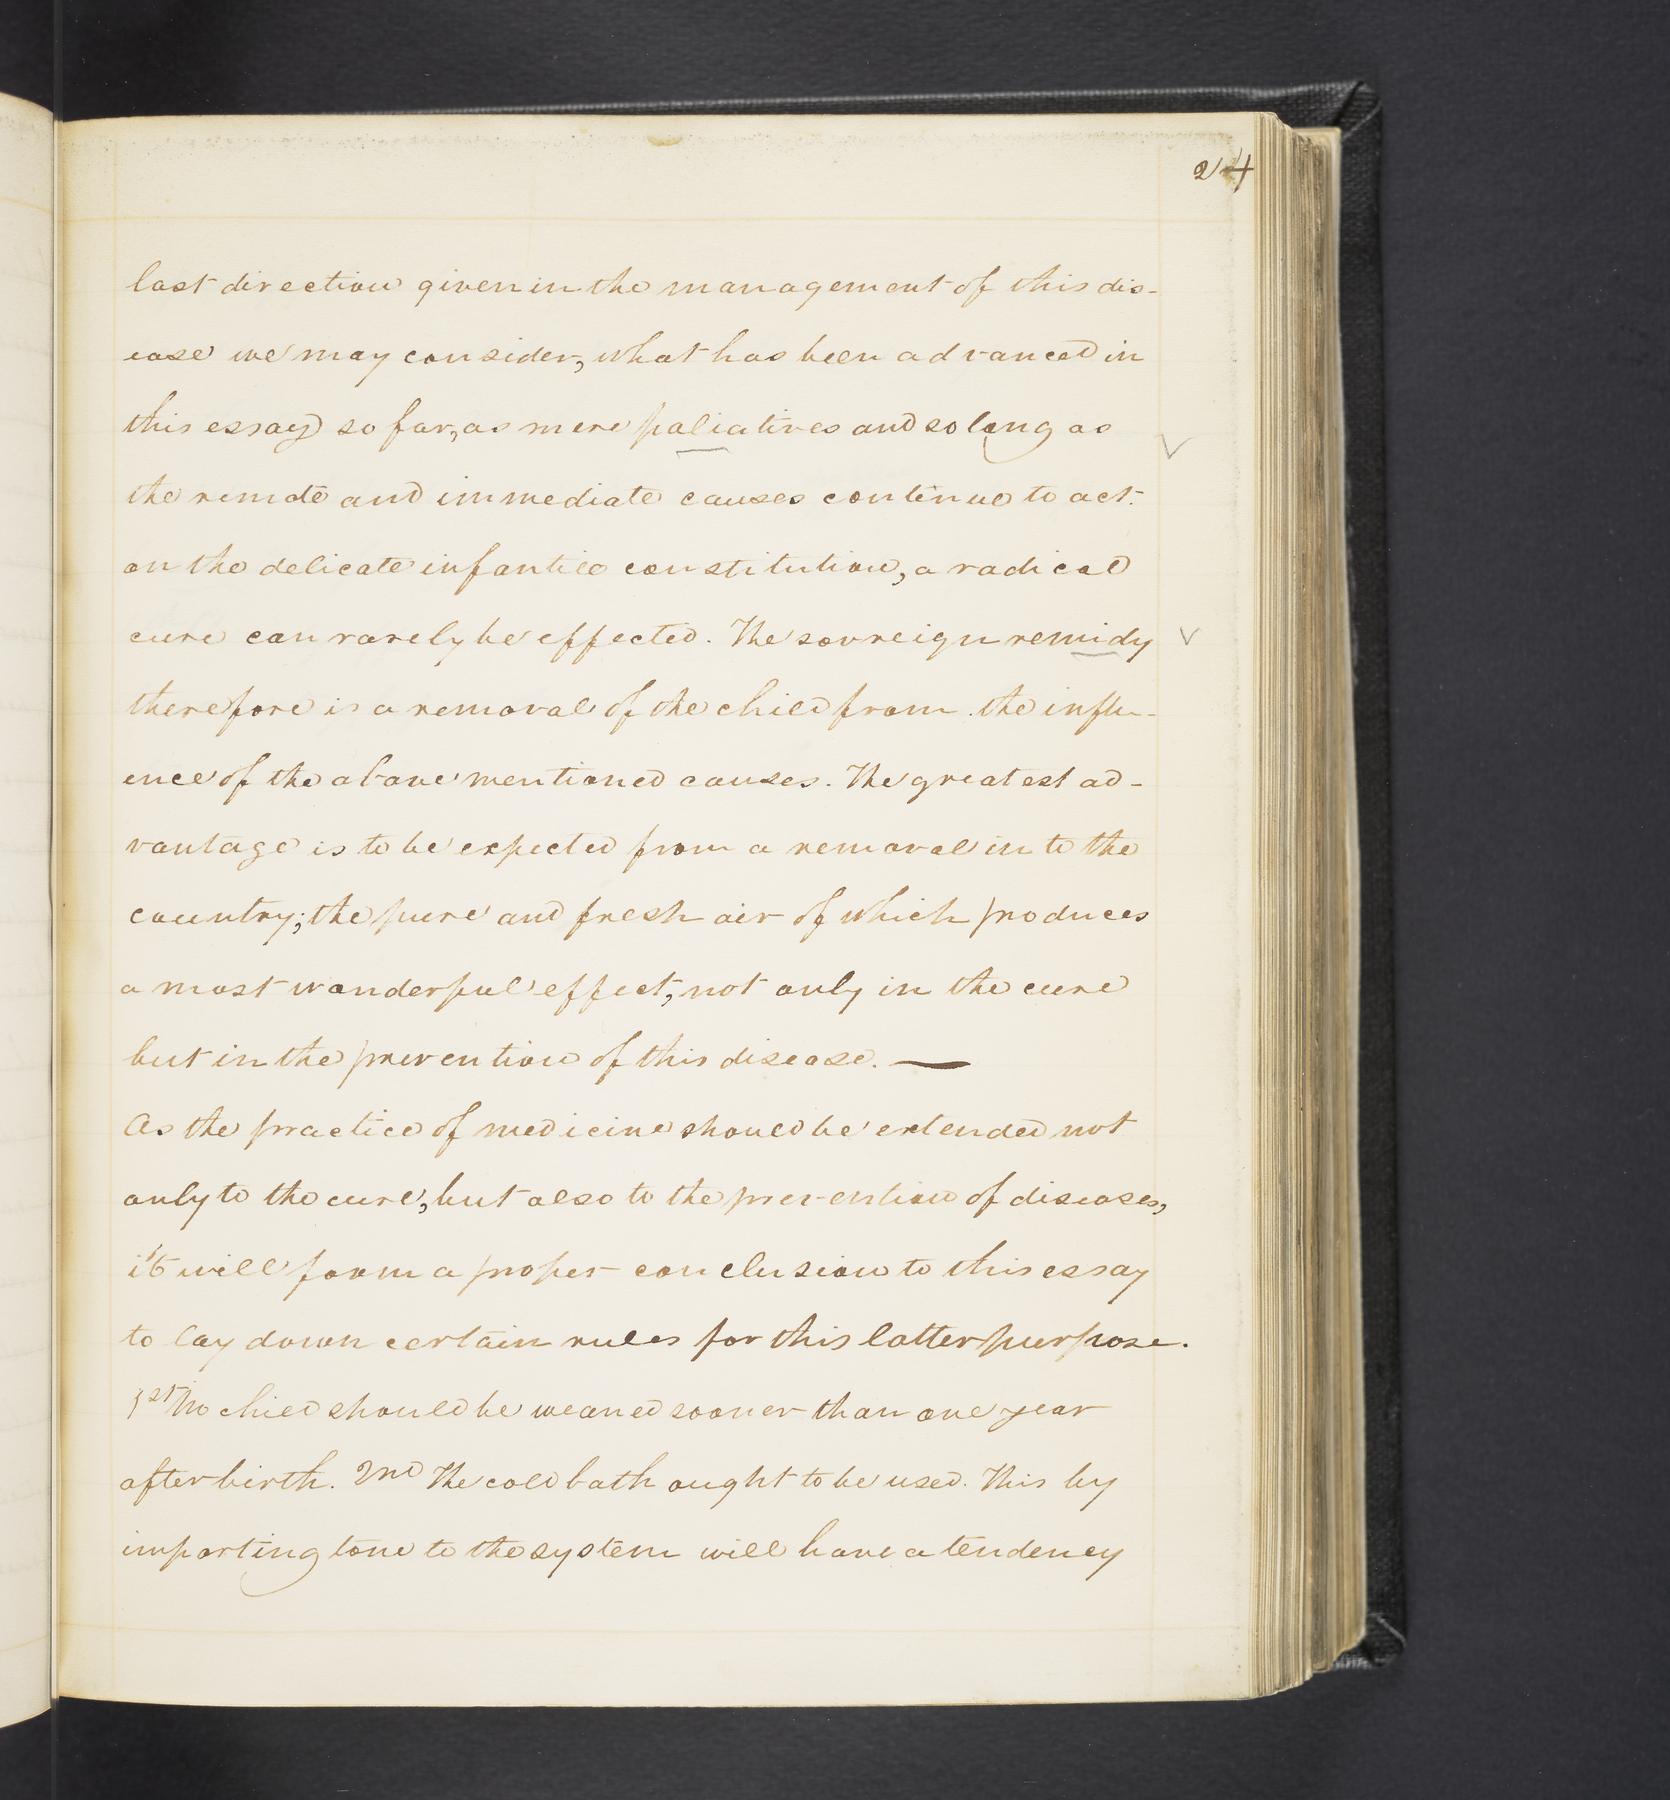 24
last direction given in the management of this dis-
ease we may consider, what has been advanced in
this essay so far, as mere paliatives and so long as
the remote and immediate causes continue to act
on the delicate infantile constitution, a radical
cure can rarely be effected. The sovreign remidy
therefore is a removal of the child from the influ-
ence of the above mentioned causes. The greatest ad-
vantage is to be expected from a removal in to the
country; the pure and fresh air of which produces
a most wonderful effect, not only in the cure
but in the prevention of this disease. —
As the practice of medicine should be extended not
only to the cure, but also to the prevention of diseases,
it will form a proper conclusion to this essay
to lay down certain rules for this latter purpose.
1st No child should be weaned sooner than one year
after birth. 2nd The cold bath ought to be used. This by
imparting tone to the system will have a tendency